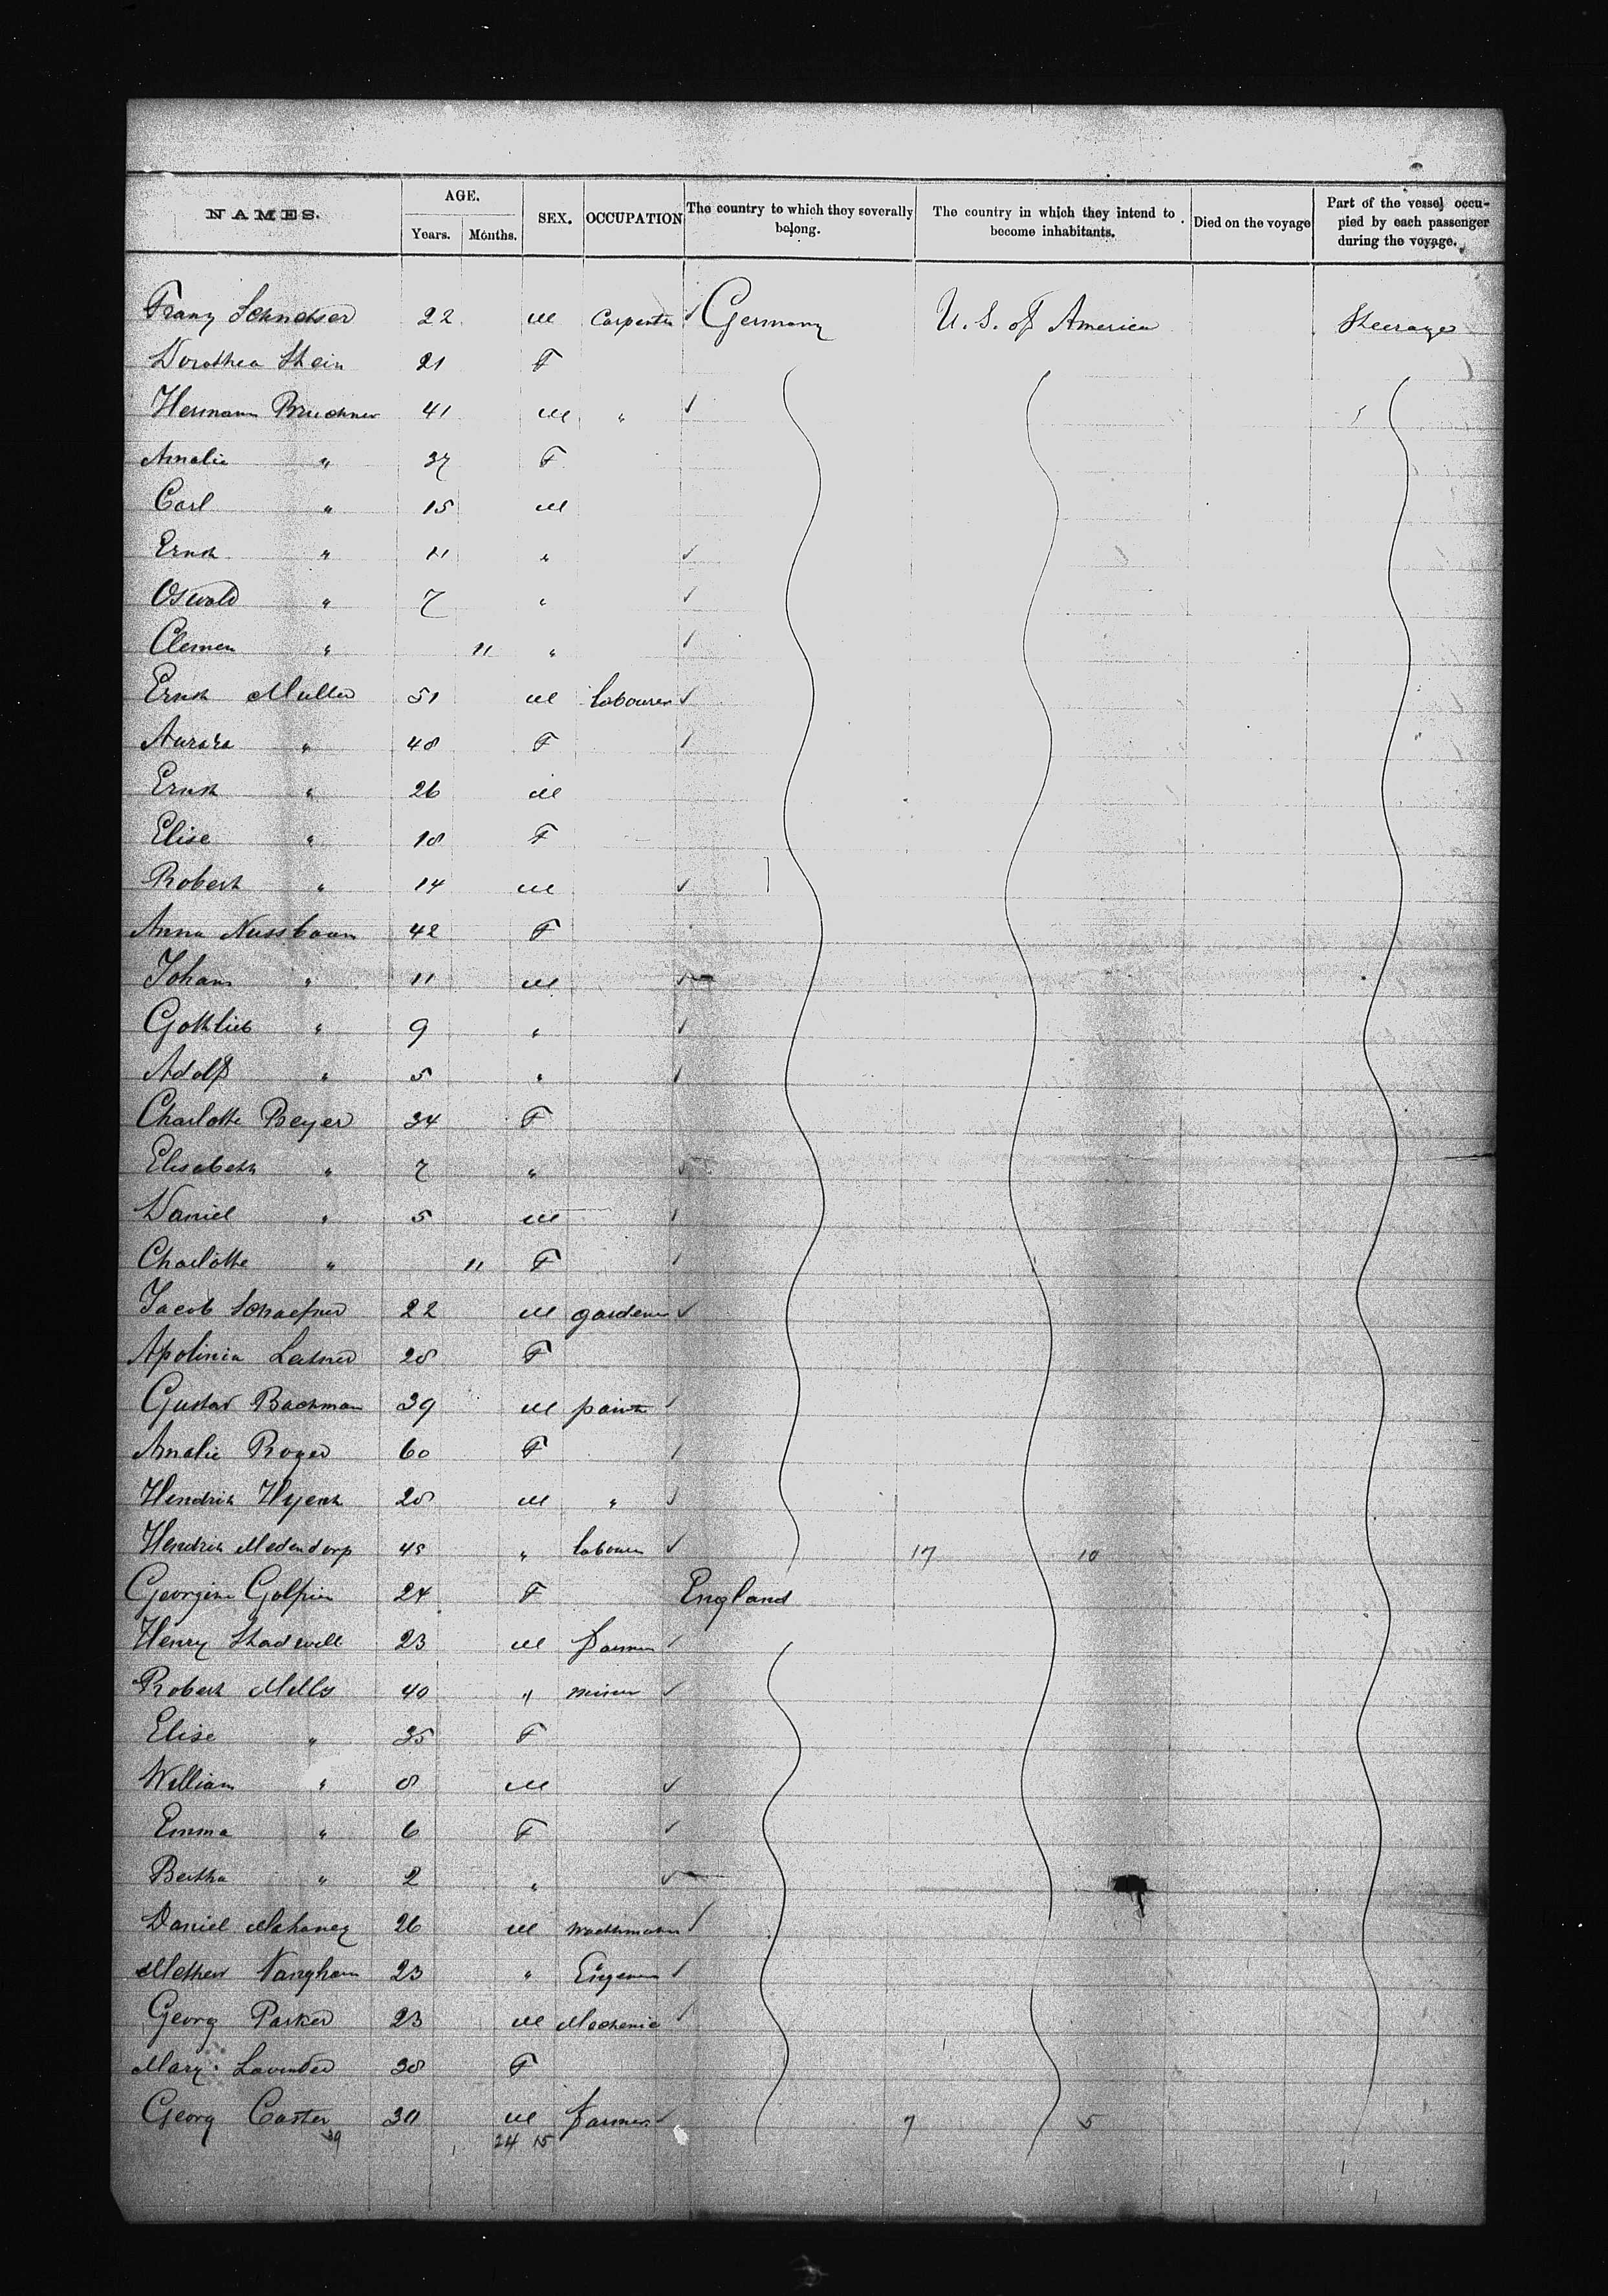 NAMES. AGE. SEX. OCCUPATION The country to which they severally belong. The country in which they intend to become inhabitants. Died on the voyage Part of the vessel occupied by each passenger during the voyage.
Years. Months.
Franz 22 M Carpenter Germany U. S. of America Steerage
Dorothea Stein 21 F
Hermann Bruckner 41 M "
Amalie " 37 F
Carl " 15 M
Ernst " 11 "
Oswald " 7 "
Clemen " 11 "
Ernst Muller 51 M labourer
Aurora " 48 F
Ernst " 26 M
Elise " 18 F
Robert " 14 M
Anna Nussbaum 42 F
Johann " 11 M
Gottlieb " 9 "
Adolf " 5 "
Charlotte Beyer 34 F
Elisabeth " 7 "
Daniel " 5 M
Charlotte " 11 F
Jacob Schaefner 22 M gardener
Apolinia 28 F
Gustav Bachman 39 M painter
Amalie Roger 60 F
Hendrik 28 M "
Hendrik Medendorp 45 " labourer 17 10
Georgine 24 F England
Henry Shadwell 23 M farmer
Robert Mills 40 " miner
Elise " 35 F
William " 8 M
Emma " 6 F
Bertha " 2 "
Daniel Mahoney 26 M
Methew Vanghan 23 "
Georg Parker 23 M Mechanic
Mary Lavender 38 F
Georg Carter 30 M farmer 7 5
39 24 15